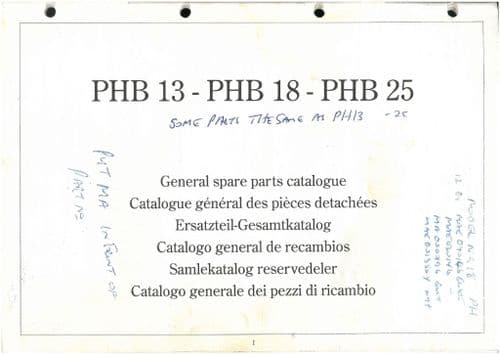 PHB 13 - PHB 18 - PHB 25
SOME PARTS THE SAME AS PH13 - 25
PUT MA IN FRONT OF
PART No
General spare parts catalogue
Catalogue général des pièces detachées
Ersatzteil-Gesamtkatalog
Catalogo general de recambios
Samlekatalog reservedeler
Catalogo generale dei pezzi di ricambio
MODEL No 18 PH
1